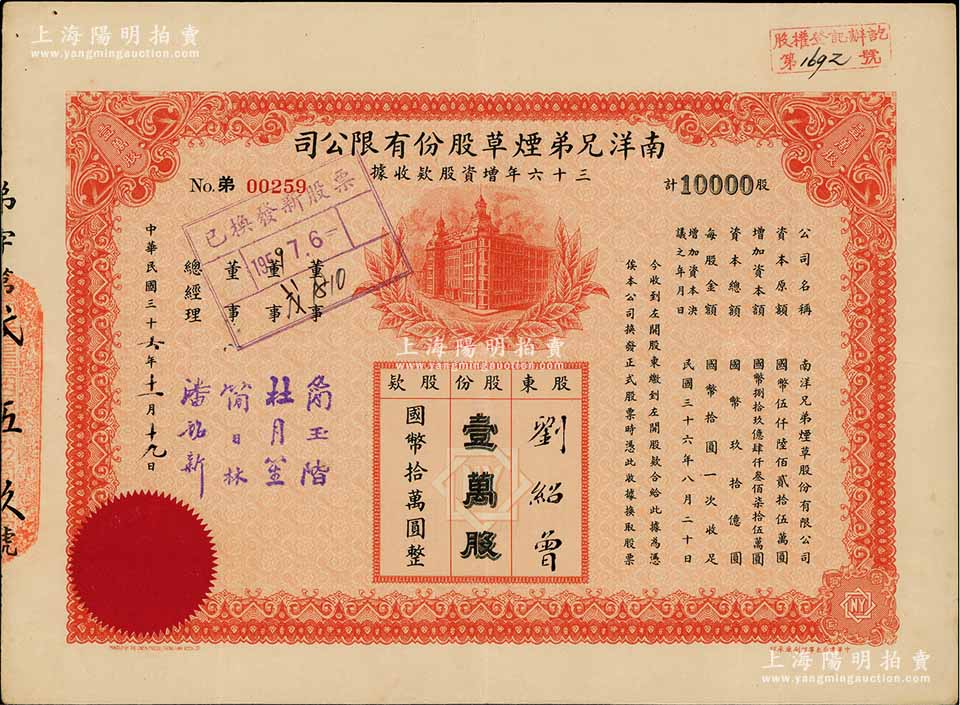 上海陽明拍賣
www.yangmingauction.com
股權登記辦訖
第1692號
壹萬股
壹萬股
司公限有份股草煙弟兄洋南
據收款股資增年六十三
計10000股
No. 弟 00259
已換發新股票
1959 7. 6 =
1510
公司名稱 南洋兄弟煙草股份有限公司
資本原額 國幣伍仟陸佰貳拾伍萬圓
增加資本額 國幣捌拾玖億肆仟叁佰柒拾伍萬圓
資本總額 國幣玖拾億圓
每股金額 國幣拾圓一次收足
增加資本決議之年月日 民國三十六年八月二十日
今收到左開股東繳到左開股款合給此據為憑
俟本公司換發正式股票時憑此收據換取股票
東股
劉紹曾
份股
壹萬股
款股
國幣拾萬圓整
董事
董事
董事
總經理
杜月笙
簡日林
中華民國三十六年十一月十九日
NY
上海陽明拍賣
www.yangmingauction.com
上海陽明拍賣
www.yangmingauction.com